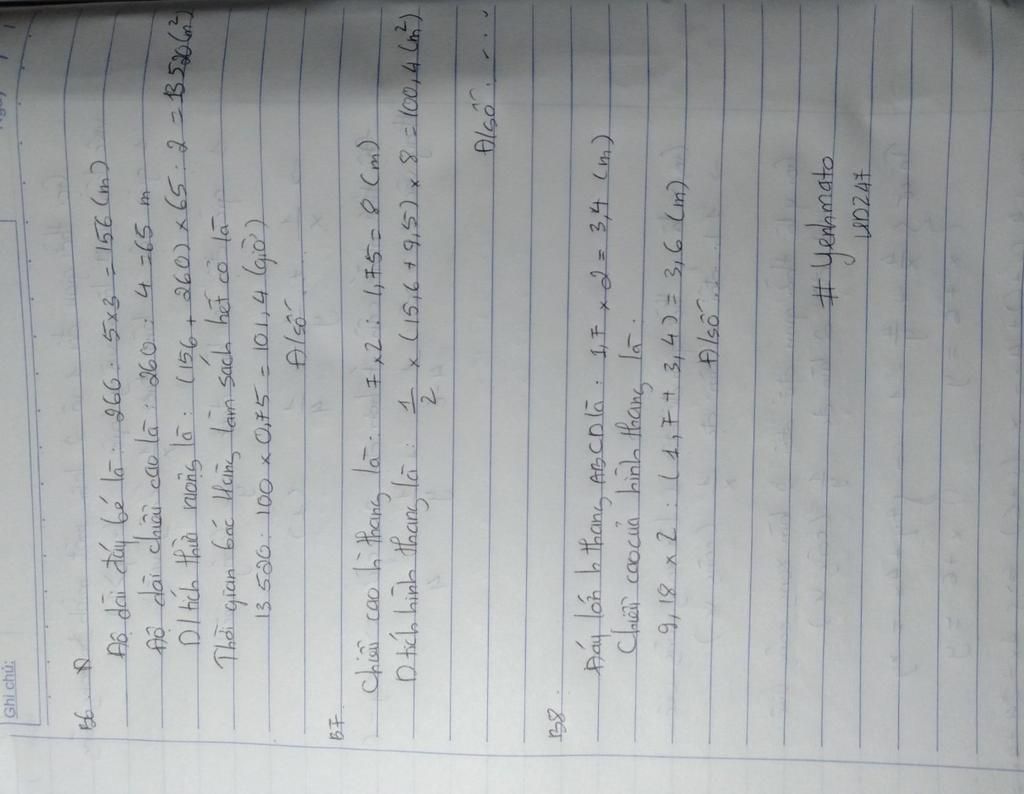 Ghi chú:
B6.
Độ dài đáy bé là: 266 : 5 x 3 = 156 (m)
Độ dài chiều cao là: 260 : 4 = 65 m
D/tích thửa ruộng là: (156 + 260) x 65 : 2 = 13520 (m²)
Thời gian bác Hùng làm sách hết cỏ là
13520 : 100 x 0,75 = 101,4 (giờ)
Đ/số
B7.
Chiều cao h thang là: 7 x 2 : 1,75 = 8 (m)
D tích hình thang là: 1/2 x (15,6 + 9,5) x 8 = 100,4 (m²)
Đ/số....
B8.
Đáy lớn h thang ABCD là: 1,7 x 2 = 3,4 (m)
Chiều cao của hình thang là.
9,18 x 2 : (1,7 + 3,4) = 3,6 (m)
Đ/số.
# Yenhmato
UD247